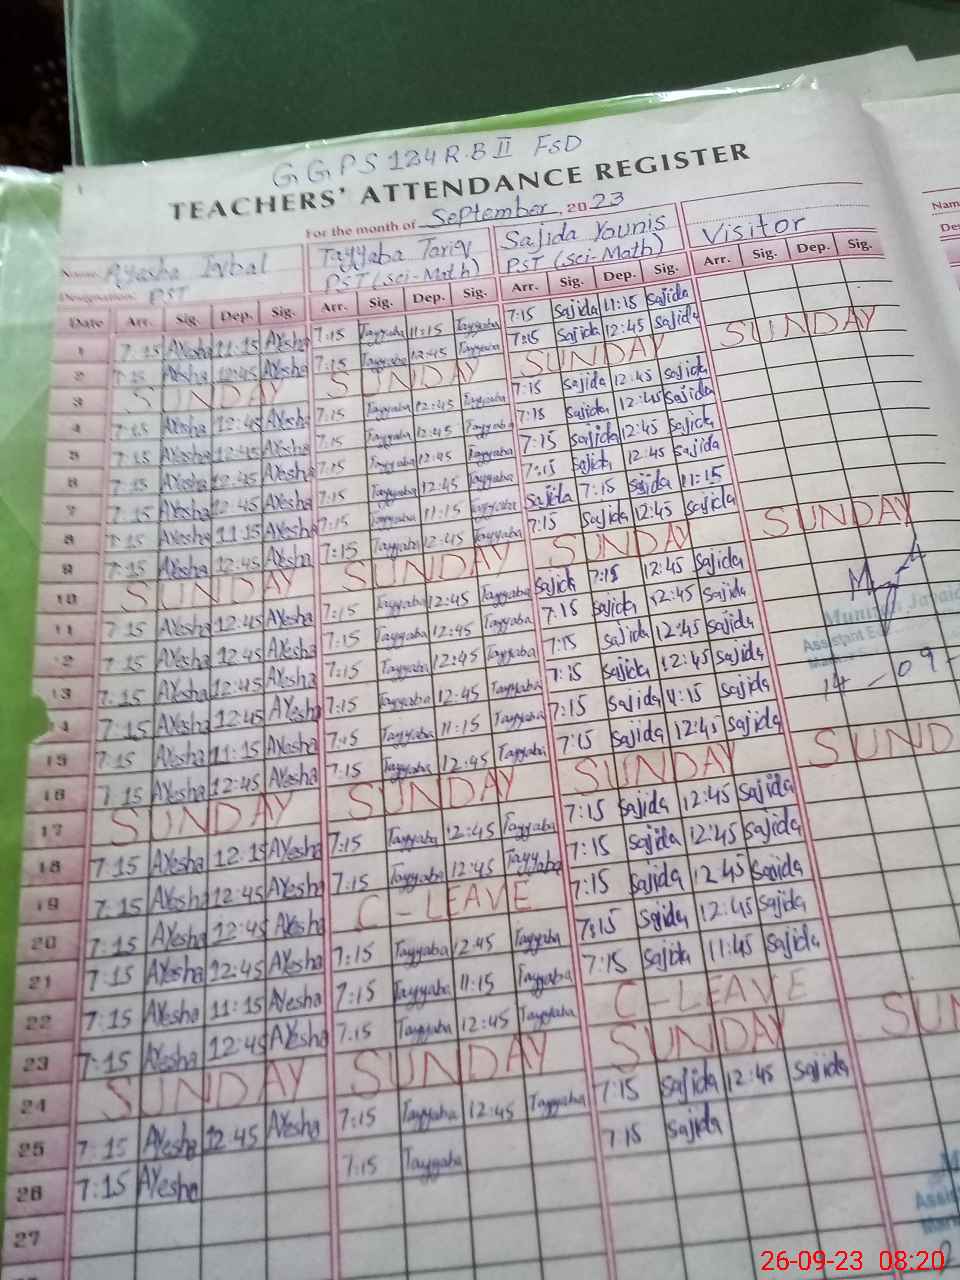 1
GGPS 124 R.B II FSD
TEACHERS' ATTENDANCE REGISTER
For the month of September, 2023
Name Ayesha Iqbal Tayyaba Tariq Sajida Younis Visitor
Designation PST PST (Sci-Math) PST (Sci-Math)
Date Arr. Sig. Dep. Sig. Arr. Sig. Dep. Sig. Arr. Sig. Dep. Sig. Arr. Dep. Sig.
1 7:15 AYesha 11:15 AYesha 7:15 Tayyaba 11:15 Tayyaba 7:15 Sajida 11:15 Sajida
2 7:15 AYesha 12:45 AYesha 7:15 Tayyaba 12:45 Tayyaba 7:15 Sajida 12:45 Sajida
3 SUNDAY SUNDAY SUNDAY SUNDAY
4 7:15 AYesha 12:45 AYesha 7:15 Tayyaba 12:45 Tayyaba 7:15 Sajida 12:45 Sajida
5 7:15 AYesha 12:45 AYesha 7:15 Tayyaba 12:45 Tayyaba 7:15 Sajida 12:45 Sajida
6 7:15 AYesha 12:45 AYesha 7:15 Tayyaba 12:45 Tayyaba 7:15 Sajida 12:45 Sajida
7 7:15 AYesha 12:45 AYesha 7:15 Tayyaba 12:45 Tayyaba 7:15 Sajida 12:45 Sajida
8 7:15 AYesha 11:15 AYesha 7:15 Tayyaba 11:15 Tayyaba Sajida 7:15 Sajida 11:15
9 7:15 AYesha 12:45 AYesha 7:15 Tayyaba 12:45 Tayyaba 7:15 Sajida 12:45 Sajida
10 SUNDAY SUNDAY SUNDAY SUNDAY
11 7:15 AYesha 12:45 AYesha 7:15 Tayyaba 12:45 Tayyaba Sajida 7:15 12:45 Sajida
12 7:15 AYesha 12:45 AYesha 7:15 Tayyaba 12:45 Tayyaba 7:15 Sajida 12:45 Sajida
13 7:15 AYesha 12:45 AYesha 7:15 Tayyaba 12:45 Tayyaba 7:15 Sajida 12:45 Sajida
14 7:15 AYesha 12:45 AYesha 7:15 Tayyaba 12:45 Tayyaba 7:15 Sajida 12:45 Sajida
15 7:15 AYesha 11:15 AYesha 7:15 Tayyaba 11:15 Tayyaba 7:15 Sajida 11:15 Sajida
16 7:15 AYesha 12:45 AYesha 7:15 Tayyaba 12:45 Tayyaba 7:15 Sajida 12:45 Sajida
17 SUNDAY SUNDAY SUNDAY SUND
18 7:15 AYesha 12:15 AYesha 7:15 Tayyaba 12:45 Tayyaba 7:15 Sajida 12:45 Sajida
19 7:15 AYesha 12:45 AYesha 7:15 Tayyaba 12:45 Tayyaba 7:15 Sajida 12:45 Sajida
20 7:15 AYesha 12:45 AYesha C-LEAVE 7:15 Sajida 12:45 Sajida
21 7:15 AYesha 12:45 AYesha 7:15 Tayyaba 12:45 Tayyaba 7:15 Sajida 12:45 Sajida
22 7:15 AYesha 11:15 AYesha 7:15 Tayyaba 11:15 Tayyaba 7:15 Sajida 11:45 Sajida
23 7:15 AYesha 12:45 AYesha 7:15 Tayyaba 12:45 Tayyaba C-LEAVE
24 SUNDAY SUNDAY SUNDAY SUN
25 7:15 AYesha 12:45 AYesha 7:15 Tayyaba 12:45 Tayyaba 7:15 Sajida 12:45 Sajida
26 7:15 AYesha 7:15 Tayyaba 7:15 Sajida
27
Assistant
14-09-
Nam
De
26-09-23 08:20